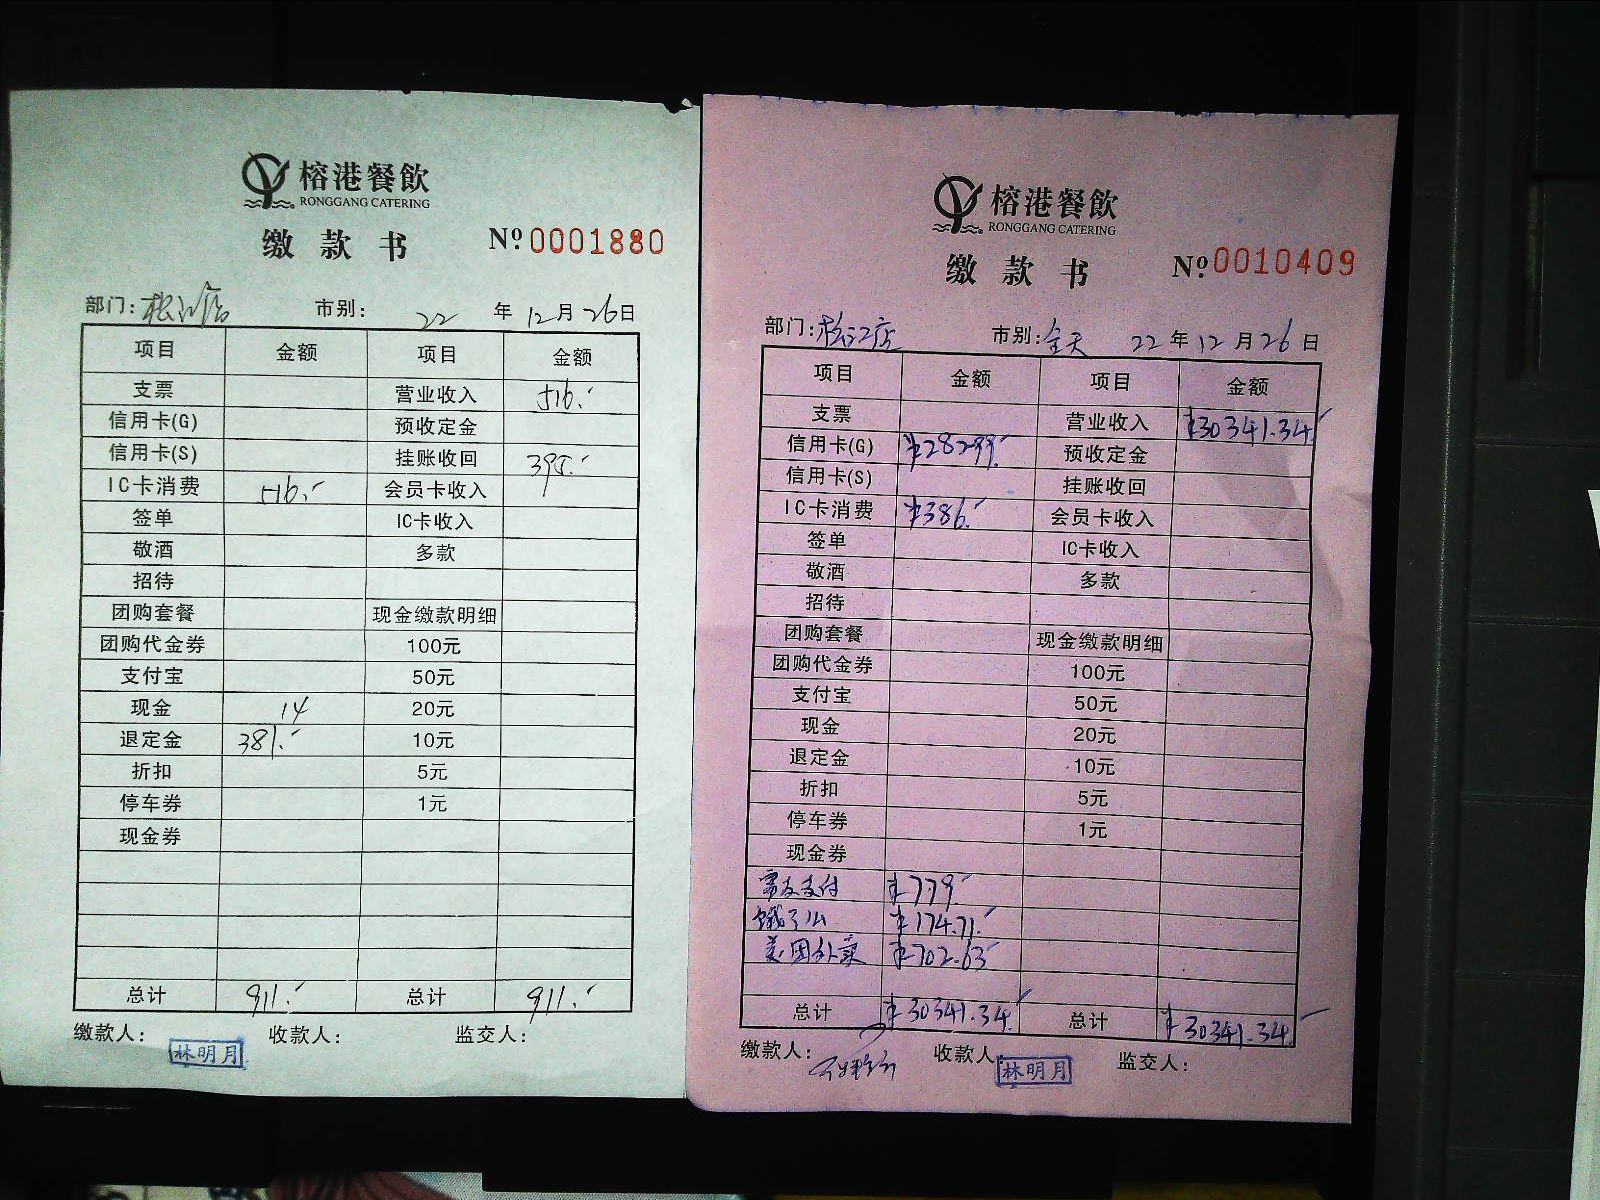 榕港餐飲
RONGGANG CATERING
缴款书 Nº 0001880
部门: 松江店 市别: 22 年 12 月 26 日
项目 金额 项目 金额
支票 营业收入 516.-
信用卡(G) 预收定金
信用卡(S) 挂账收回 395.-
IC卡消费 516.- 会员卡收入
签单 IC卡收入
敬酒 多款
招待
团购套餐 现金缴款明细
团购代金券 100元
支付宝 50元
现金 14 20元
退定金 381.- 10元
折扣 5元
停车券 1元
现金券
总计 911.- 总计 911.-
缴款人: 收款人: 监交人:
林明月
榕港餐飲
RONGGANG CATERING
缴款书 Nº 0010409
部门: 松江店 市别: 全天 22 年 12 月 26 日
项目 金额 项目 金额
支票 营业收入 ¥30341.34
信用卡(G) ¥28299.- 预收定金
信用卡(S) 挂账收回
IC卡消费 ¥386.- 会员卡收入
签单 IC卡收入
敬酒 多款
招待
团购套餐 现金缴款明细
团购代金券 100元
支付宝 50元
现金 20元
退定金 10元
折扣 5元
停车券 1元
现金券
支付 ¥779.-
饿了么 ¥174.71
美团外卖 ¥702.63
总计 ¥30341.34 总计 ¥30341.34
缴款人: 收款人: 林明月 监交人: